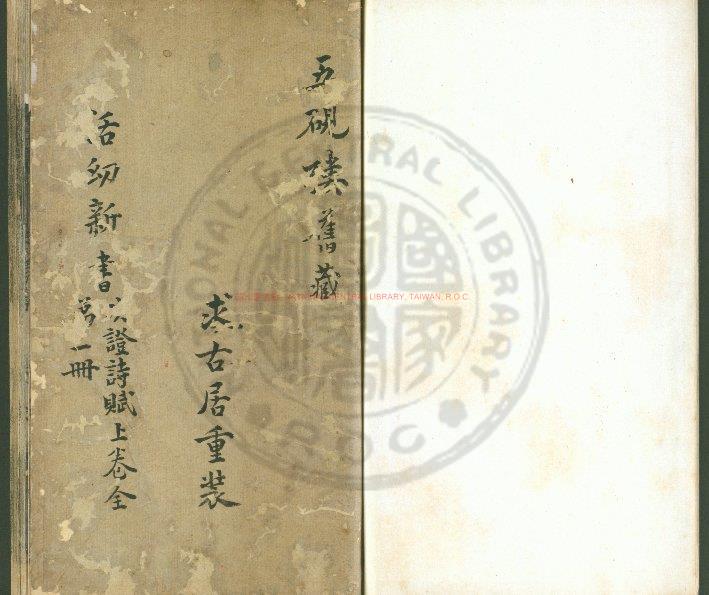 五硯樓舊藏
求古居重裝
活幼新書决證詩賦上卷全
一冊
NATIONAL CENTRAL LIBRARY, TAIWAN, R.O.C
NATIONAL CENTRAL LIBRARY
ROC